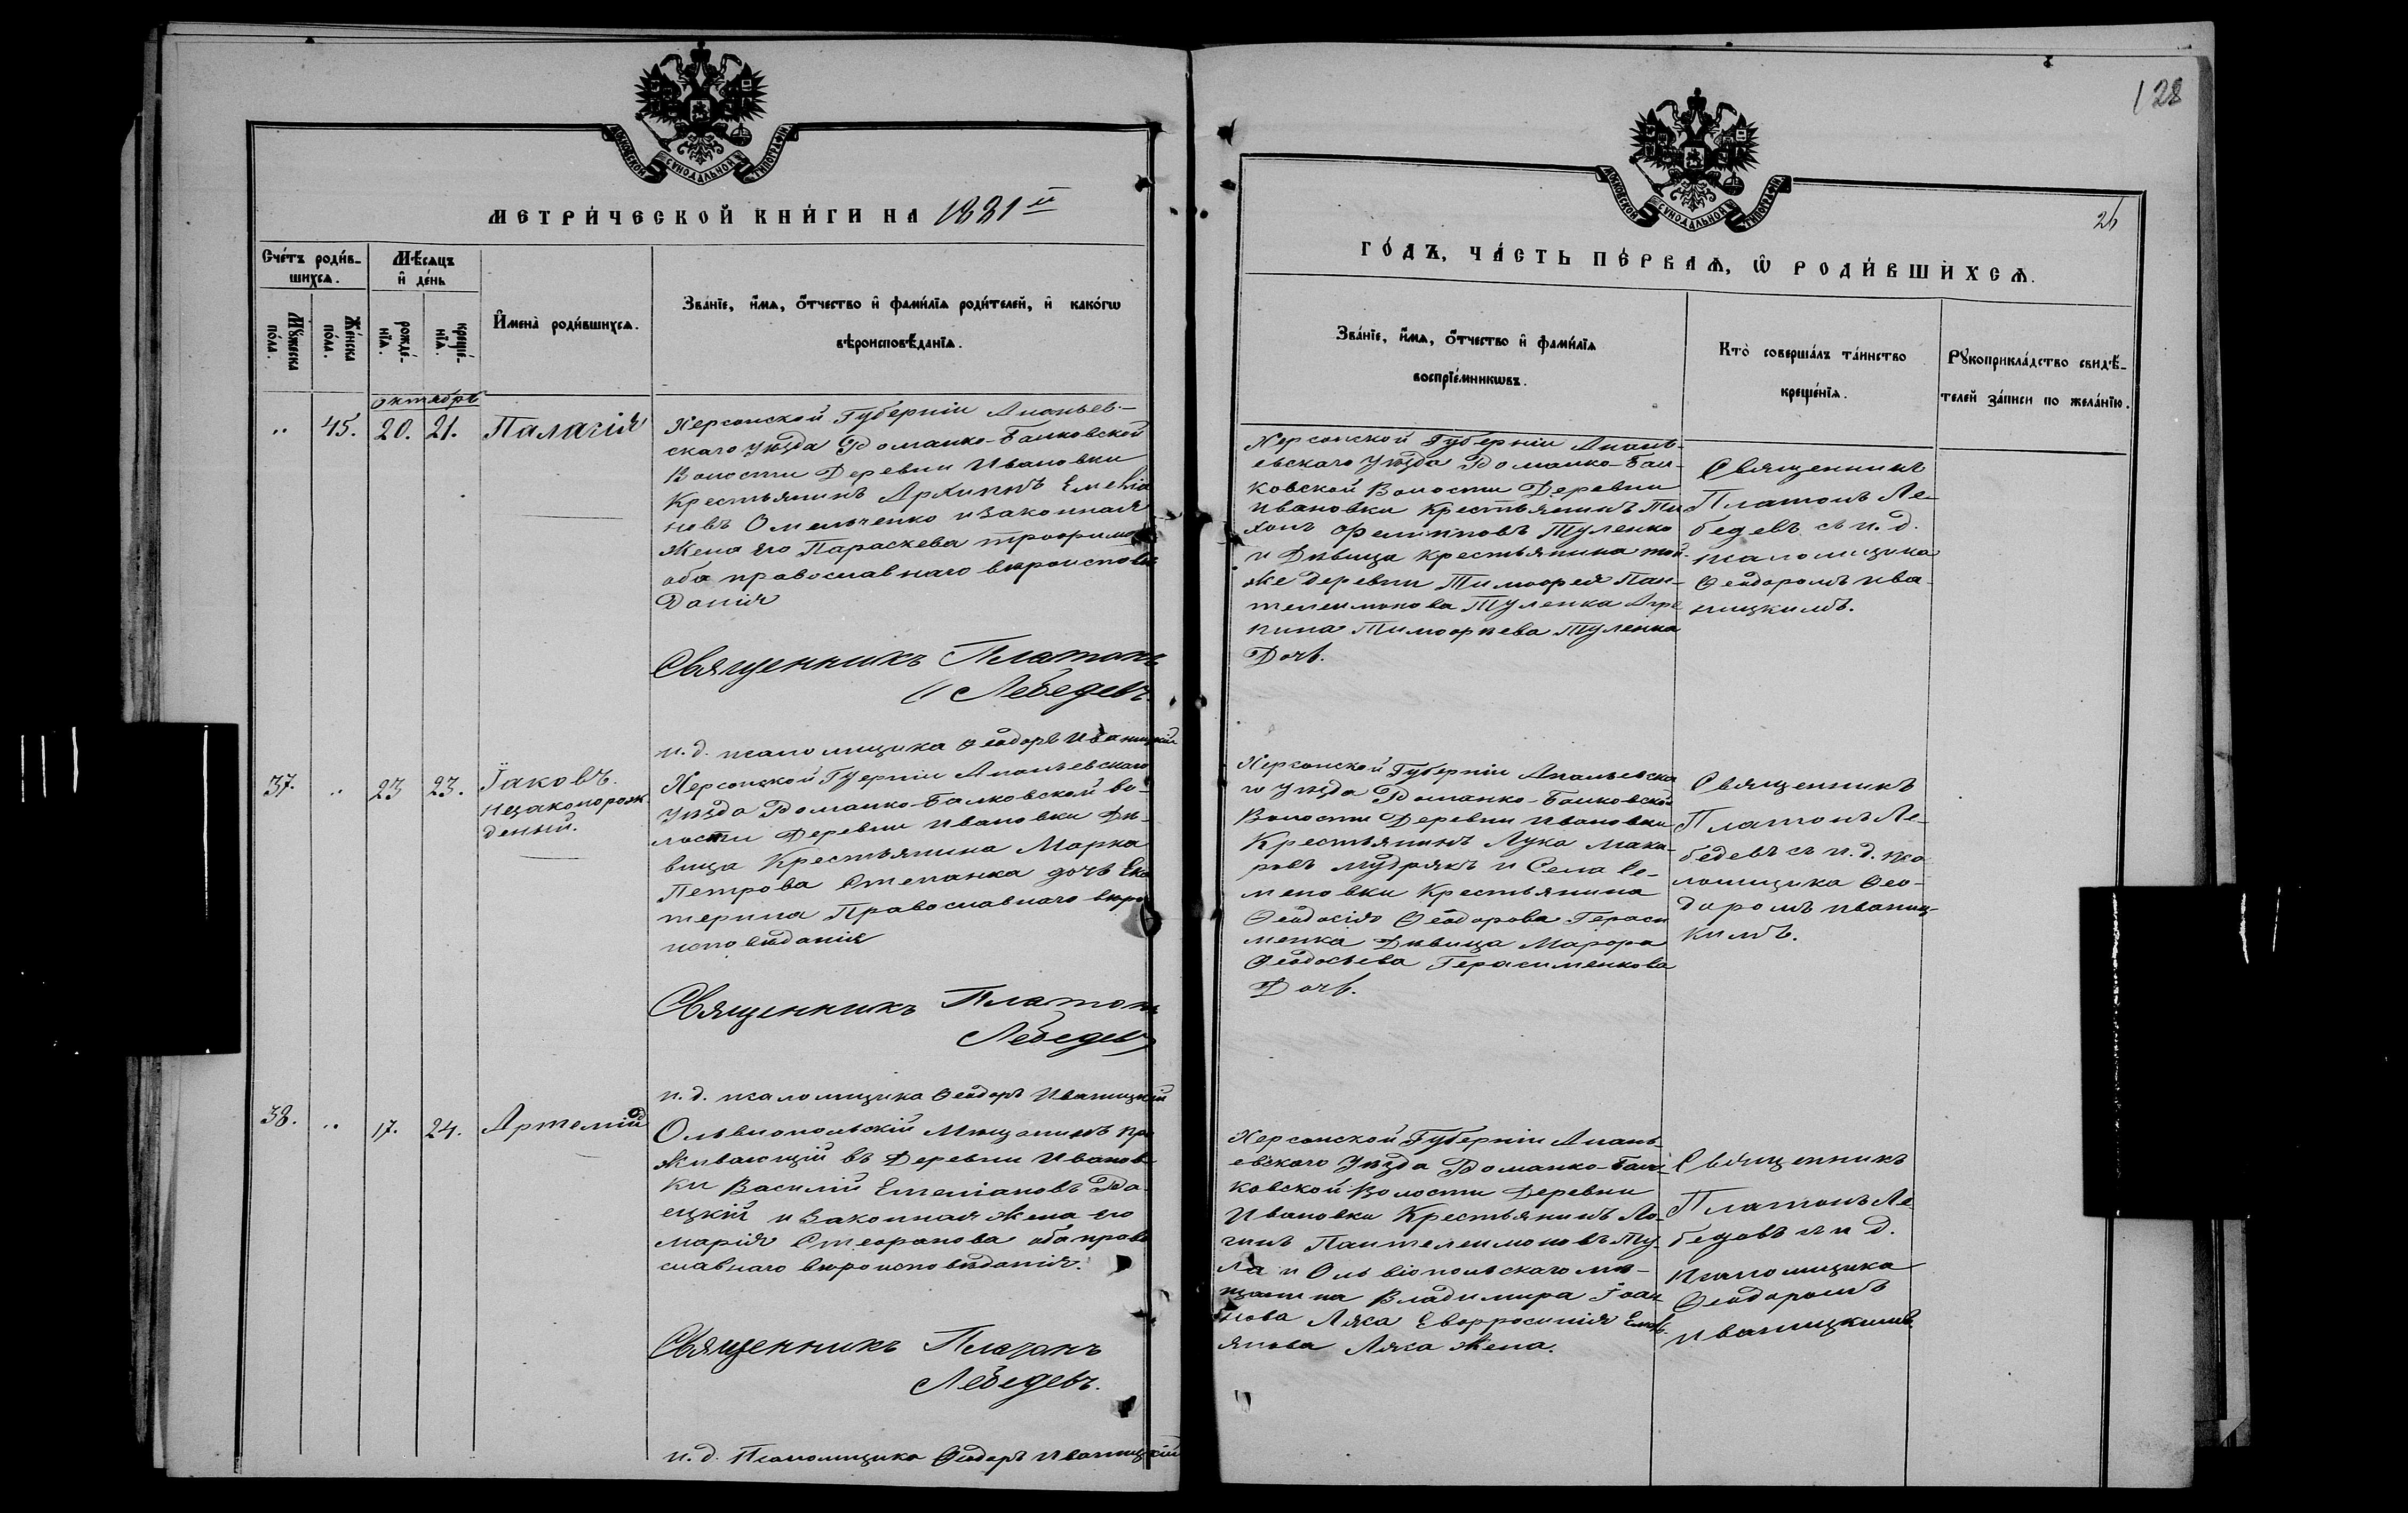 МОСКОВСКОЙ СѴНОДАЛЬНОЙ ТИПОГРАФІИ
МЕТРИ́ЧЕСКОЙ КНИ́ГИ НА 1881й
Сче́тъ роди́в-
шихсѧ.
Мѣ́сѧцъ
и҆ де́нь
Мꙋ́жеска
по́ла.
Же́нска
по́ла.
рожде́-
нїѧ.
креще́-
нїѧ.
И҆мена̀ роди́вшихсѧ.
Зва́нїе, и҆́мѧ, ѻ҆́тчество и҆ фами́лїѧ роди́телей, и҆ како́гѡ
вѣроисповѣ́данїѧ.
октябрь
.. 45. 20. 21. Палагія
Херсонской Губерніи Ананьев-
скаго уѣзда Романко-Балковской
Волости Деревни Ивановки
Крестьянинъ Архиппъ Емеліа
новъ Омельченко и Законная
Жена его Параскева трофимова
оба православнаго вѣроисповѣ
данія
Священникъ Платонъ
Лебедевъ.
и. д. псаломщика Ѳеодоръ Иваницкій
37. .. 23 23. Іаковъ.
незаконорож
денный.
Херсонской Гуерніи Ананьевскаго
уѣзда Романко-Балковской во-
лости Деревни Ивановки Дѣ-
вица Крестьянина Марка
Петрова Степанка дочь Ека
терина Православнаго вѣро
исповѣданія
Священникъ Платонъ
Лебедевъ
и. д. псаломщика Ѳеодоръ Иваницкій
38. .. 17. 24. Артемій
Ольвиопольскій Мѣщанинъ про
живающій въ Деревни Иванов
ки Василій Емеліановъ
и Законная Жена его
Марія Стефанова оба право
славнаго вѣроисповѣданія.
Священникъ Платонъ
Лебедевъ.
и. д. Псаломщика Ѳеодоръ Иваницкій
128
26
МОСКОВСКОЙ СѴНОДАЛЬНОЙ ТИПОГРАФІИ
ГО́ДЪ, ЧА́СТЬ ПЕ́РВАѦ, Ѡ҆ РОДИ́ВШИХСѦ.
Зва́нїе, и҆́мѧ, ѻ҆́тчество и҆ фами́лїѧ
воспрїе́мникѡвъ.
Кто̀ соверша́лъ та́инство
креще́нїѧ.
Рꙋкоприкла́дство свидѣ́-
телей за́писи по жела́нїю.
Херсонской Губерніи Анань-
евскаго уѣзда Романко-Бал-
ковской Волости Деревни
Ивановки Крестьянинъ Ти
хонъ Филипповъ Туленко
и Дѣвица крестьянина той-
же деревни Тимофея Пан-
телеимонова Туленка Агри
пина Тимофѣева Туленка
Дочь.
Священникъ
Платонъ Ле-
бедевъ съ и. д.
псаломщика
Ѳеодоромъ Ива-
ницкимъ.
Херсонской Губерніи Ананьевска
го уѣзда Романко-Балковской
Волости Деревни Ивановки
Крестьянинъ Лука Мака-
ровъ Мудрякъ и Села Се-
меновки Крестьянина
Ѳеодосія Ѳеодорова Гераси
менка Дѣвица Марфа
Ѳеодосьева Герасименкова
Дочь.
Священникъ
Платонъ Ле-
бедевъ съ и. д. пса
ломщика Ѳео-
доромъ Иваниц-
кимъ.
Херсонской Губерніи Анань-
евскаго уѣзда Романко-Бал-
ковской Волости Деревни
Ивановки Крестьянинъ Ло-
гинъ Пантелеимоновъ Ту-
ла и Ольвіопольскаго мѣ-
щанина Владимира Іоан
нова Ляха Евфросинія Емель
янова Ляха Жена.
Священникъ
Платонъ Ле
бедевъ съ и д.
псаломщика
Ѳеодоромъ
Иваницкимъ.